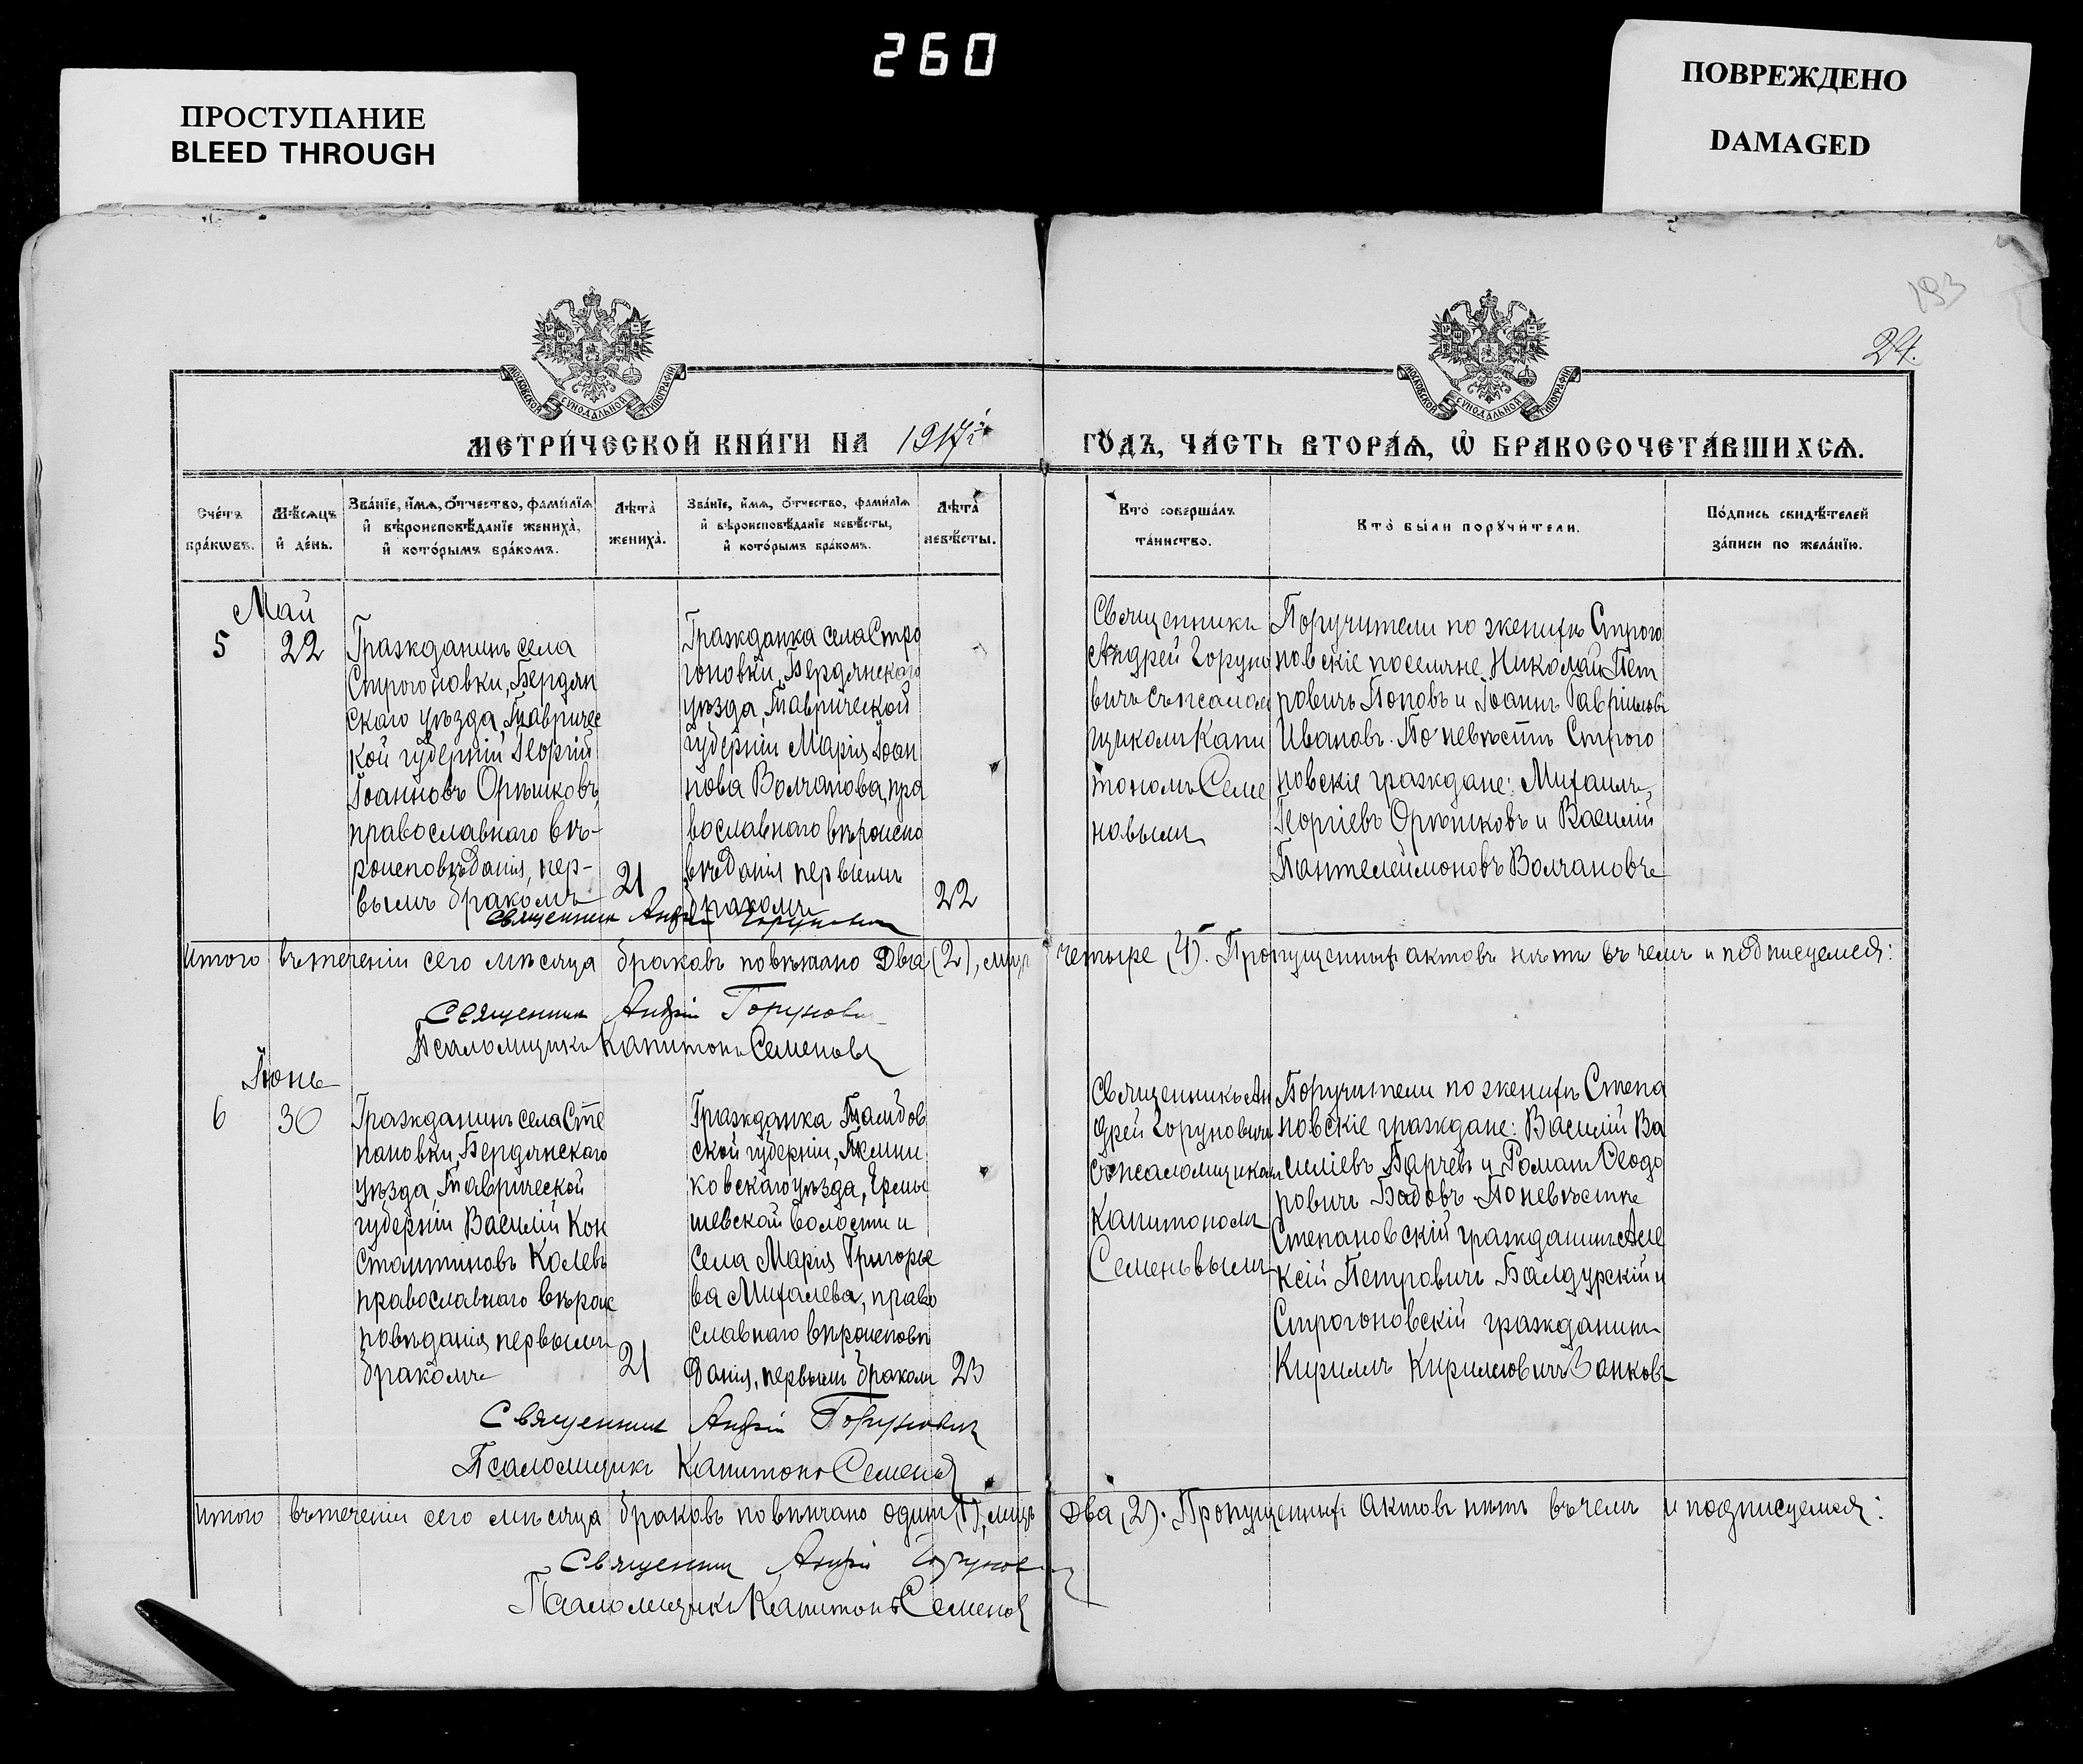 260
ПРОСТУПАНИЕ
BLEED THROUGH
ПОВРЕЖДЕНО
DAMAGED
193
24.
МОСКОВСКОЙ СУНОДАЛЬНОЙ ТИПОГРАФІИ
МОСКОВСКОЙ СУНОДАЛЬНОЙ ТИПОГРАФІИ
МЕТРИ́ЧЕСКОЙ КНИ́ГИ НА 1917й
ГО́ДЪ, ЧА́СТЬ ВТОРА́Ѧ, Ѽ БРАКОСОЧЕТА́ВШИХСѦ.
Сче́тъ
бра́кѡвъ.
Мѣ́сѧцъ
и҆ де́нь.
Зва́нїе, и҆́мѧ, ѻ҆́тчество, фами́лїѧ
и҆ вѣроисповѣ́данїе жениха̀,
и҆ кото́рымъ бра́комъ.
Лѣ́та
жениха̀.
Зва́нїе, и҆́мѧ, ѻ҆́тчество, фами́лїѧ
и҆ вѣроисповѣ́данїе невѣ́сты,
и҆ кото́рымъ бра́комъ.
Лѣ́та
невѣ́сты.
Кто̀ соверша́лъ
та́инство.
Кто̀ бы́ли порꙋчи́тели.
По́дпись свидѣ́телей
за́писи по жела́нїю.
Май
5
22
Гражданинъ села
Строгоновки, Бердян
скаго уѣзда, Тавричес
кой губерніи Георгій
Іоанновъ Орѣшковъ,
православнаго вѣ-
роисповѣданія, пер-
вымъ бракомъ
21
Гражданка села Стро
гоновки, Бердянскаго
уѣзда, Таврической
губерніи Марія Іоан
нова Волчанова, пра
вославнаго вѣроиспо
вѣданія первымъ
бракомъ
22
Священникъ
Андрей Горуно
вичъ съ псалом
щикомъ Капи
тономъ Семе
новымъ
Поручители по женихѣ Строго
новскіе поселяне Николай Пет
ровичъ Поповъ и Іоаннъ Гавріиловъ
Ивановъ. По невѣстѣ Строго
новскіе граждане: Михаилъ
Георгіевъ Орѣшковъ и Василій
Пантелеймоновъ Волчановъ
Священникъ Андрей Горуновичъ
Итого въ теченіи сего мѣсяца браковъ повѣнчано два (2), лицъ четыре (4). Пропущенныхъ актовъ нѣтъ въ чемъ и подписуемся:
Священник Андрей Горунович
Псаломщикъ Капитонъ Семеновъ
Іюнь
6
30
Гражданинъ села Сте
пановки, Бердянскаго
уѣзда, Таврической
губерніи Василій Кон
стантиновъ Колевъ
православнаго вѣроис
повѣданія первымъ
бракомъ
21
Гражданка Тамбов
ской губерніи, Темни
ковскаго уѣзда, Ермы
шевской волости и
села Марія Григорье
ва Михалева, право
славнаго вѣроисповѣ
данія, первымъ бракомъ
23
Священникъ Ан
дрей Горуновичъ
съ псаломщикомъ
Капитономъ
Семеновымъ
Поручители по женихѣ Степа
новскіе граждане: Василій Ва
силіевъ Ярчевъ и Романъ Ѳеодо
ровичъ Бадовъ. По невѣстѣ
Степановскій гражданинъ Але
ксій Петровичъ Балдурскій и
Строгоновскій гражданинъ
Кириллъ Кирилловичъ Занковъ
Священник Андрей Горунович
Псаломщикъ Капитонъ Семеновъ
Итого въ теченіи сего мѣсяца браковъ повѣнчано одинъ (1), лицъ два (2). Пропущенныхъ актовъ нѣтъ въ чемъ и подписуемся:
Священник Андрей Горунович
Псаломщикъ Капитонъ Семеновъ